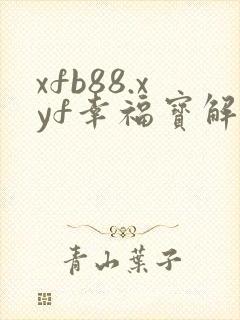 xfb88.x
yf幸福寶解
青山葉子